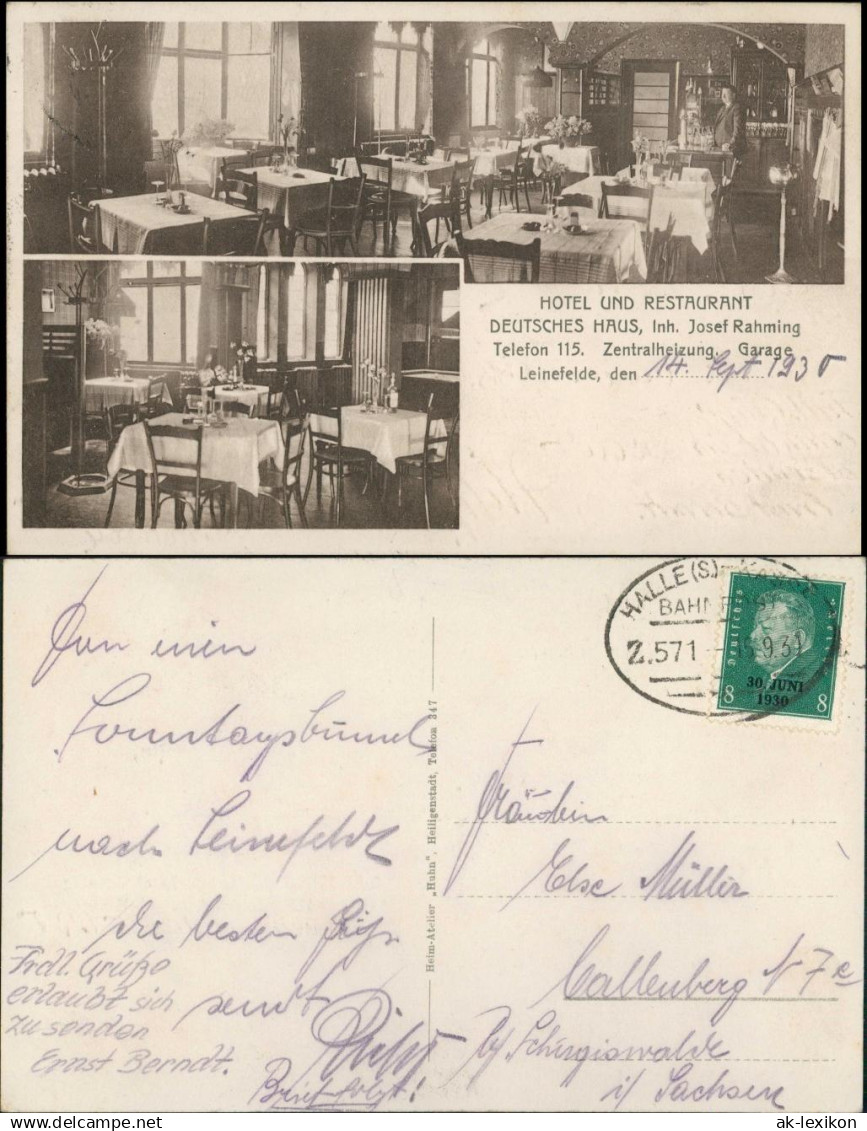 HOTEL UND RESTAURANT
DEUTSCHES HAUS, Inh. Josef Rahming
Telefon 115. Zentralheizung. Garage
Leinefelde, den 14. Sept 1930
Von mein
Sonntagsbummel
nach Leinefelde
die besten Grüße
sendt
Brief folgt!
Frdl. Grüße
erlaubt sich
zu senden
Ernst Berndt.
Heim-Atelier „Huhn", Heiligenstadt, Telefon 347
HALLE (S)
BAHNPOST
Z.571
Deutsches Reich
30. JUNI
1930
8 8
Fräulein
Else Müller
Callenberg N 7e
b/ Schirgiswalde
i/ Sachsen
ak-lexikon